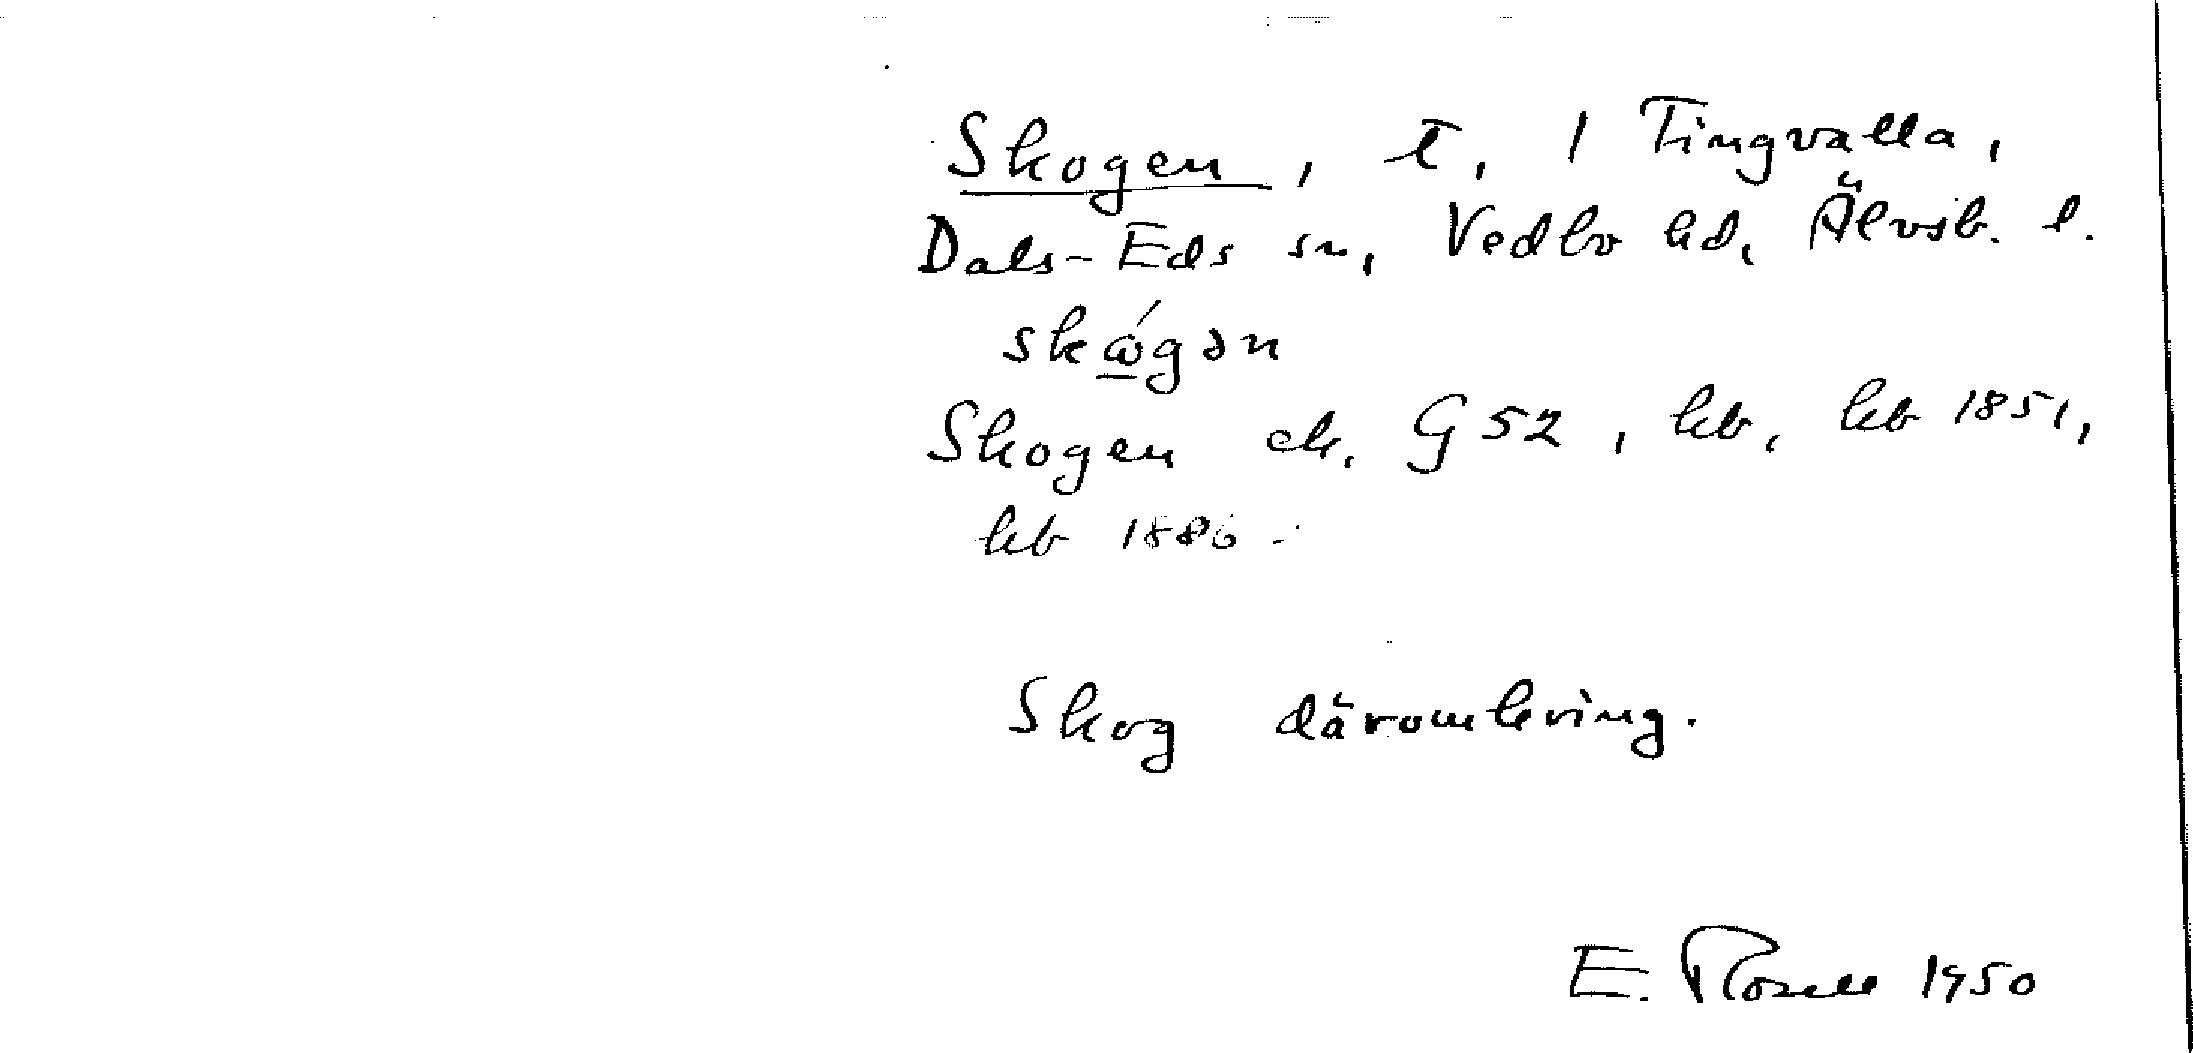 Skogen, t, 1 Tingvalla,
Dals-Eds sn, Vedbo hd, Älvsb. l.
skǿgən
Skogen ek. G 52, hb, hb 1851,
hb 1886.
Skog däromkring.
E. Rosell 1950